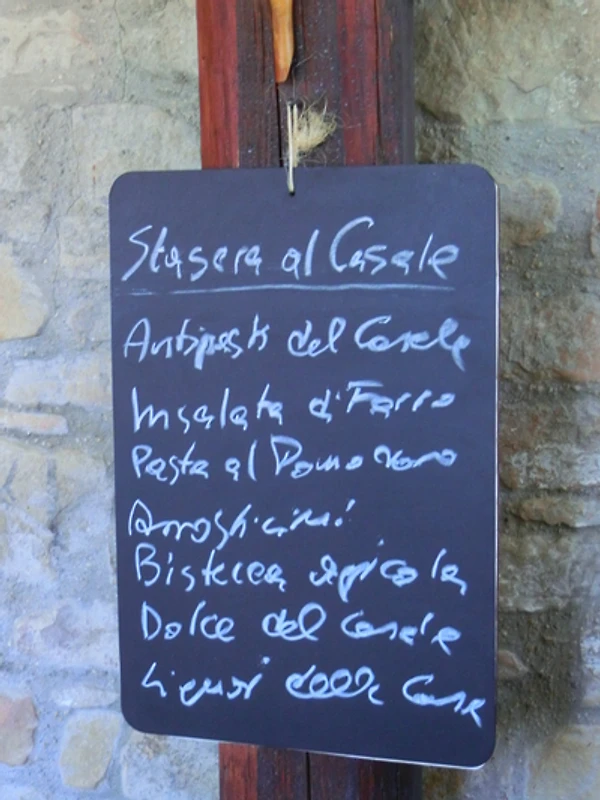 Stasera al Casale
Antipasti del Casale
Insalata di Farro
Pasta al Pomodoro
Arrosticini
Bistecca agricola
Dolce del Casale
Liquori della Casa